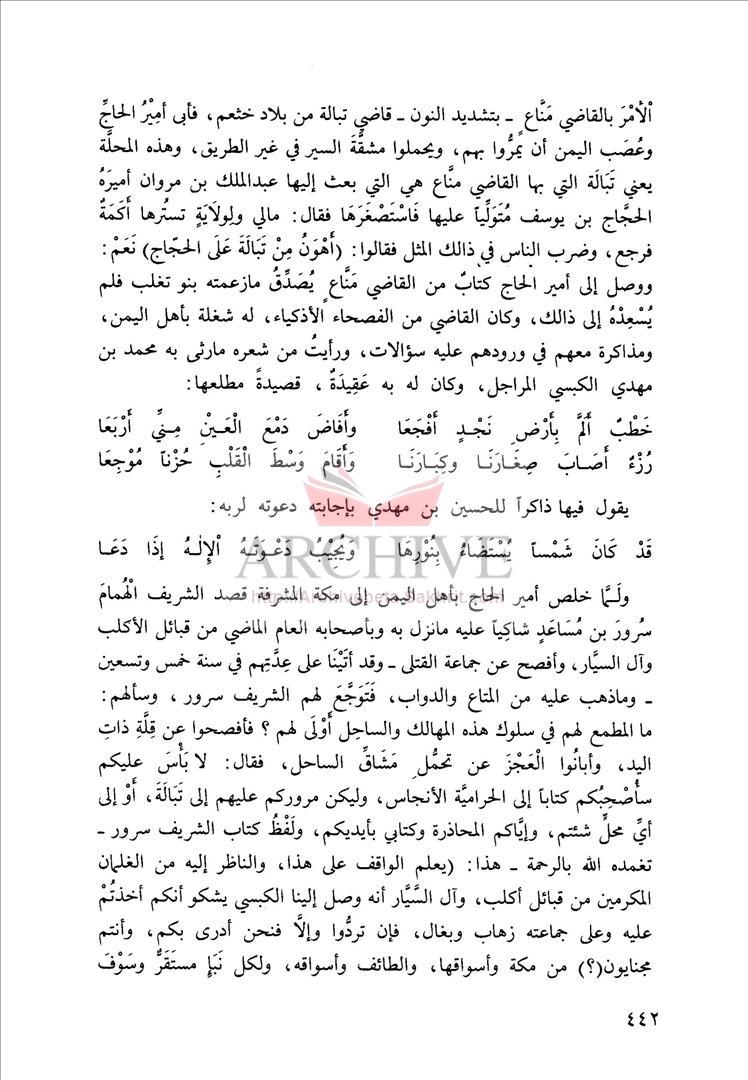 اْلأَمْرَ بالقاضي مَنَّاع ٍ ـ بتشديد النون ـ قاضي تبالة من بلاد خثعم، فأبى أمِيْرُ الحاجِّ
وعُصَب اليمن أن يمرُّوا بهم، ويحملوا مشقَّةَ السير في غير الطريق، وهذه المحلَّة
يعني تَبَالَة التي بها القاضي منَّاع هي التي بعث إليها عبدالملك بن مروان أميرَهُ
الحجَّاج بن يوسف مُتَوَلِّياً عليها فَاسْتَصْغَرَهَا فقال: مالي ولِولايَةٍ تستُرها أَكَمَةٌ
فرجع، وضرب الناس في ذالك المثل فقالوا: (أَهْوَنُ مِنْ تَبَالَةَ عَلَى الحجّاج) نَعَمْ:
ووصل إلى أمير الحاج كتابٌ من القاضي مَنَّاع ٍ يُصَدِّقُ مازعمته بنو تغلب فلم
يُسْعِدْهُ إلى ذالك، وكان القاضي من الفصحاء الأذكياء، له شغلة بأهل اليمن،
ومذاكرة معهم في ورودهم عليه سؤالات، ورأيتُ من شعره مارثى به محمد بن
مهدي الكبسي المراجل، وكان له به عَقِيدَةٌ، قصيدةً مطلعها:
خَطْبٌ أَلَمَّ بِأَرْض ِ نَجْدٍ أَفْجَعَا وأَفَاضَ دَمْعَ الْعَيْن ِ مِنِّي أَرْبَعَا
رُزْءٌ أَصَابَ صِغَارَنَا وكِبَارَنَا وَأَقَامَ وَسْطَ الْقَلْبِ حُزْناً مُوْجِعَا
يقول فيها ذاكراً للحسين بن مهدي بإجابته دعوته لربه:
قَدْ كَانَ شَمْساً يُسْتَضَاءُ بِنُورِهَا ويُجِيْبُ دَعْوَتَهُ اْلإِلٰهُ إذَا دَعَا
ARCHIVE
ولَـمَّا خلص أمير الحاج بأهل اليمن إلى مكة المشرفة قصد الشريف الْهُمامَ
سُرورَ بن مُسَاعَدٍ شاكِياً عليه مانزل به وبأصحابه العام الماضي من قبائل الأكلب
وآل السيَّار، وأفصح عن جماعة القتلى ـ وقد أتَيْنَا على عِدَّتِهم في سنة خمس وتسعين
ـ وماذهب عليه من المتاع والدواب، فَتَوَجَّعَ لهم الشريف سرور، وسألهم:
ما المطمع لهم في سلوك هذه المهالك والساحِل أَوْلَى لهم ؟ فأفصحوا عن قِلَّةِ ذاتِ
اليد، وأبانُوا الْعَجْزَ عن تحمُّل ِ مَشَاقِّ الساحل، فقال: لا بَأْسَ عليكم
سأُصْحِبُكم كتاباً إلى الحراميَّة الأنجاس، وليكن مروركم عليهم إلى تَبَالَةَ، أوْ إلى
أيِّ محلٍّ شئتم، وإيَّاكم المحاذرة وكتابي بأيديكم، ولَفْظُ كتاب الشريف سرور ـ
تغمده الله بالرحمة ـ هذا: (يعلم الواقف على هذا، والناظر إليه من الغلمان
المكرمين من قبائل أكلب، وآل السَّيَّار أنه وصل إلينا الكبسي يشكو أنكم أخذتُمْ
عليه وعلى جماعته زهاب وبغال، فإن تردُّوا وإلَّا فنحن أدرى بكم، وأنتم
مجنايون(؟) من مكة وأسواقها، والطائف وأسواقه، ولكل نَبَإٍ مستَقَرٌّ وسَوْفَ
٤٤٢